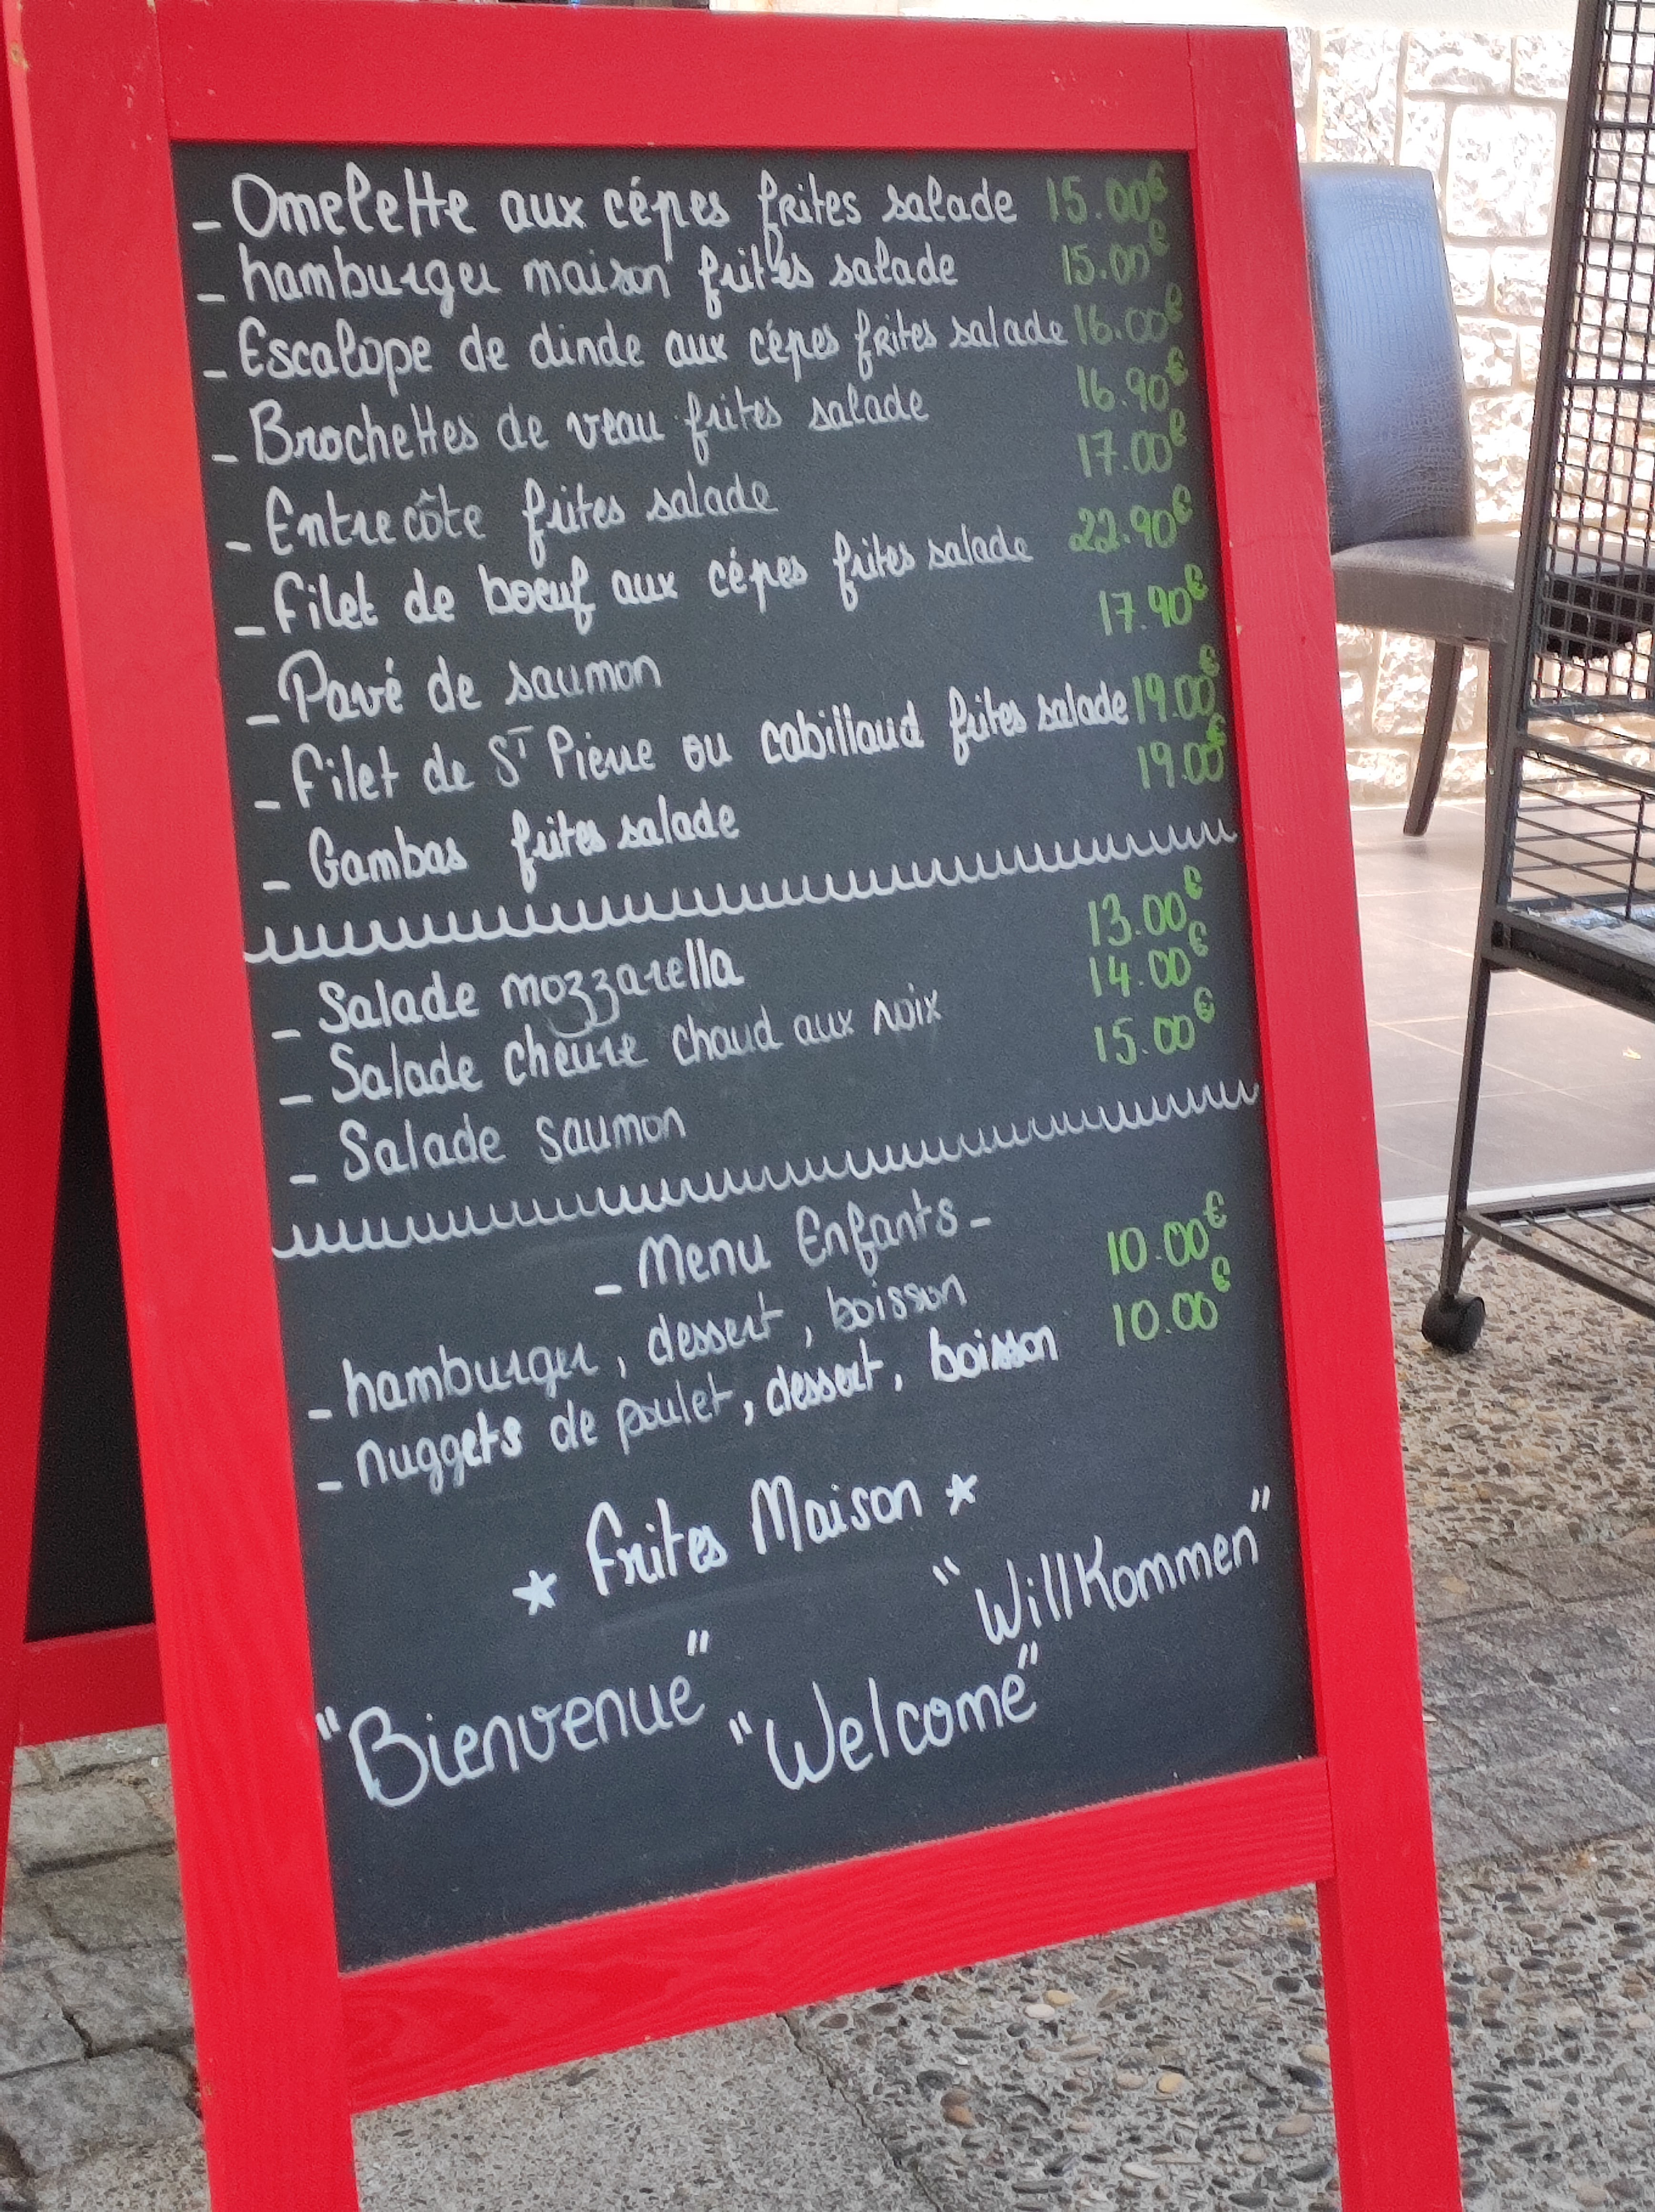 - Omelette aux cépes frites salade 15.00€
- hamburger maison frites salade 15.00€
- Escalope de dinde aux cépes frites salade 16.00€
- Brochettes de veau frites salade 16.90€
- Entrecôte frites salade 17.00€
- filet de boeuf aux cépes frites salade 22.90€
- Pavé de saumon 17.90€
- filet de ST Pierre ou cabillaud frites salade 19.00€
- Gambas frites salade 19.00€
- Salade mozzarella 13.00€
- Salade chevre chaud aux noix 14.00€
- Salade saumon 15.00€
- Menu Enfants -
- hamburger, dessert, boisson 10.00€
- nuggets de poulet, dessert, boisson 10.00€
* frites Maison *
"Willkommen"
"Bienvenue" "Welcome"